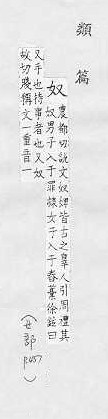 類篇
奴 農都切説文奴婢皆古之辠人引周禮其
奴男子入于罪隸女子入于舂藁徐鉉曰
又手也持事者也又奴
故切賤稱文一重音一
(女部 P.457)